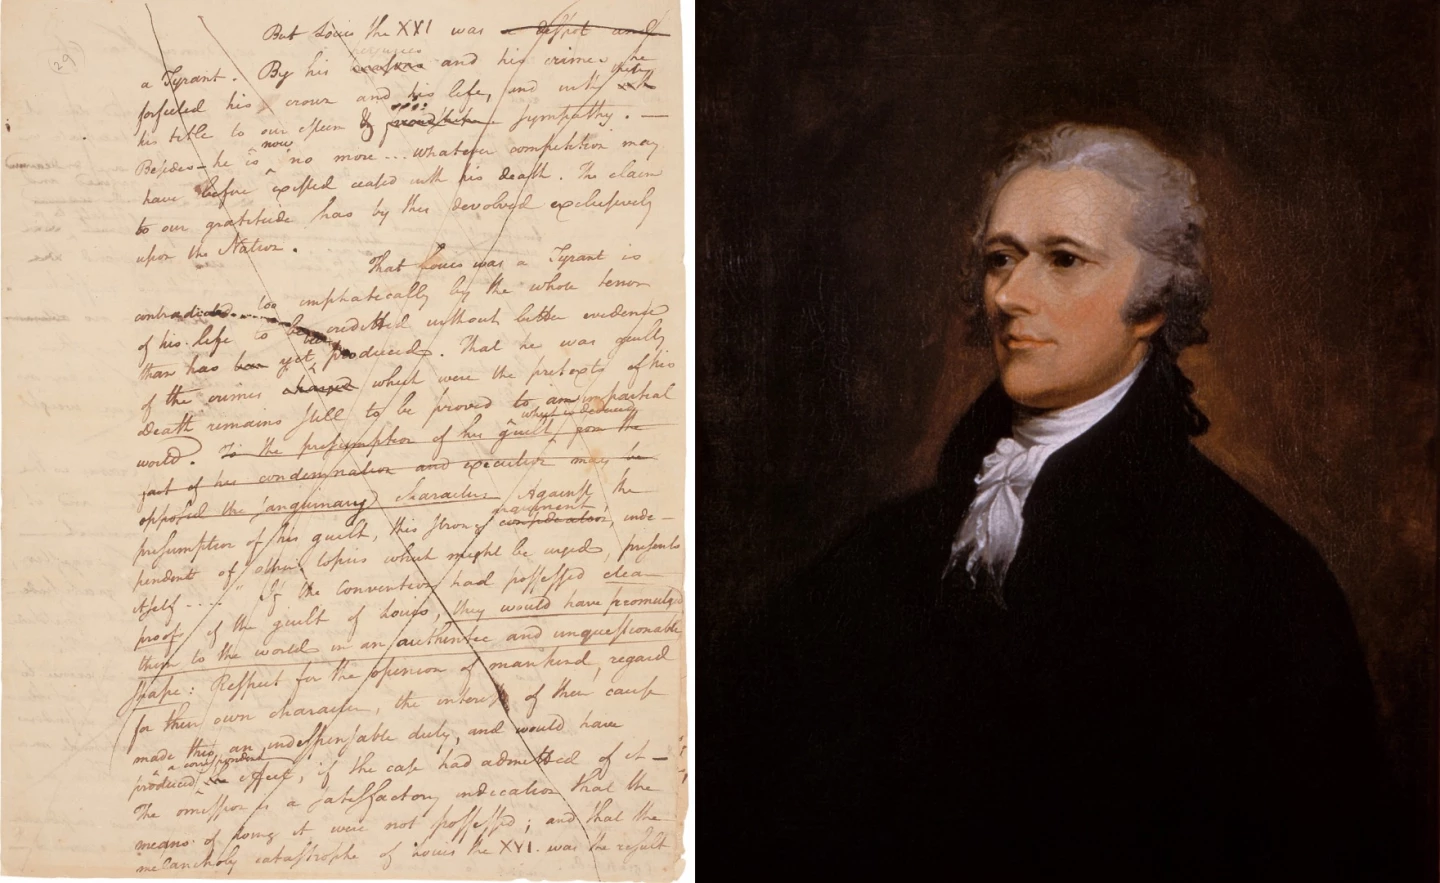 29
But Louis the XVI was a despot and
a Tyrant. By his perjuries and his crimes he
forfeited his crown and his life, and with them
his title to our esteem & sympathy. —
Besides — he is now no more ... whatever competition may
have before existed ceased with his death. The claim
to our gratitude has by this devolved exclusively
upon the Nation.
That Louis was a Tyrant is
contradicted too emphatically by the whole tenor
of his life to be creditted without better evidence
than has been yet produced. That he was guilty
of the crimes charged which were the pretexts of his
death remains still to be proved to an impartial
world. To the presumption of his guilt, which is deduced from the
fact of his condemnation and execution may be
opposed the sanguinary character Against the
presumption of his guilt, this strong argument consideration, inde-
pendent of other topics which might be urged, presents
itself .... "If the Convention had possessed clear
proof of the guilt of Louis, they would have promulged
them to the world in an authentic and unquestionable
shape: Respect for the opinion of mankind, regard
for their own character, the interest of their cause
made this an indispensable duty, and would have
produced a correspondent effect, if the case had admitted of it —
The omission is a satisfactory indication that the
means of doing it were not possessed; and that the
melancholy catastrophe of Louis the XVI. was the result